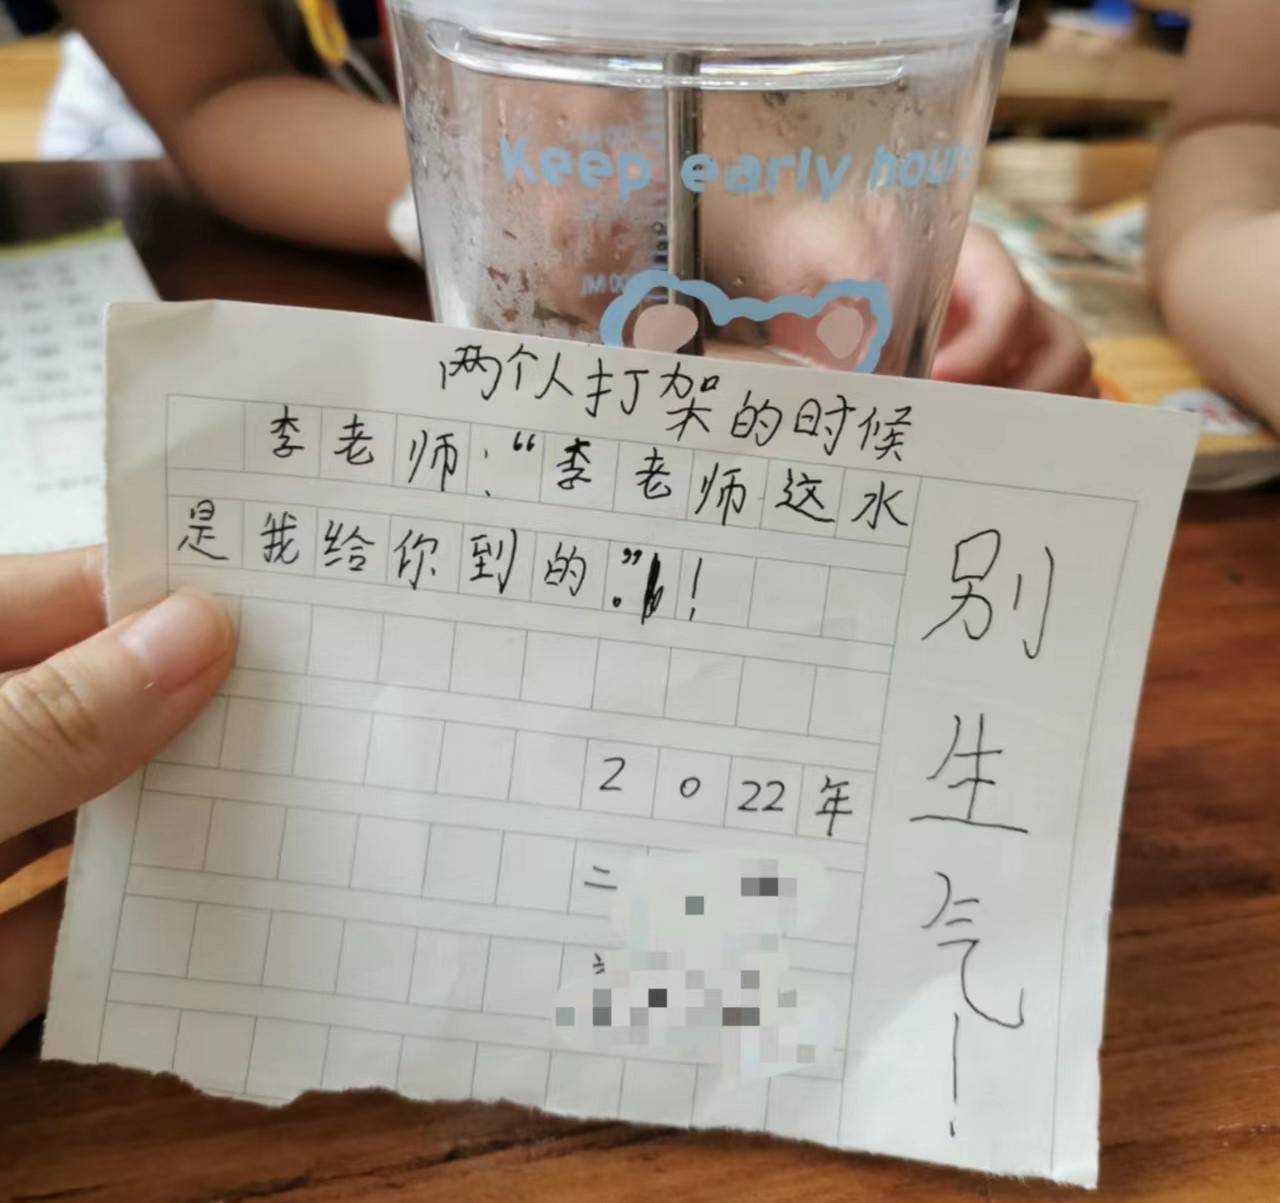 Keep early hours
两个人打架的时候
李老师：“李老师这水
是我给你到的.”！
2022年
二
别生气！